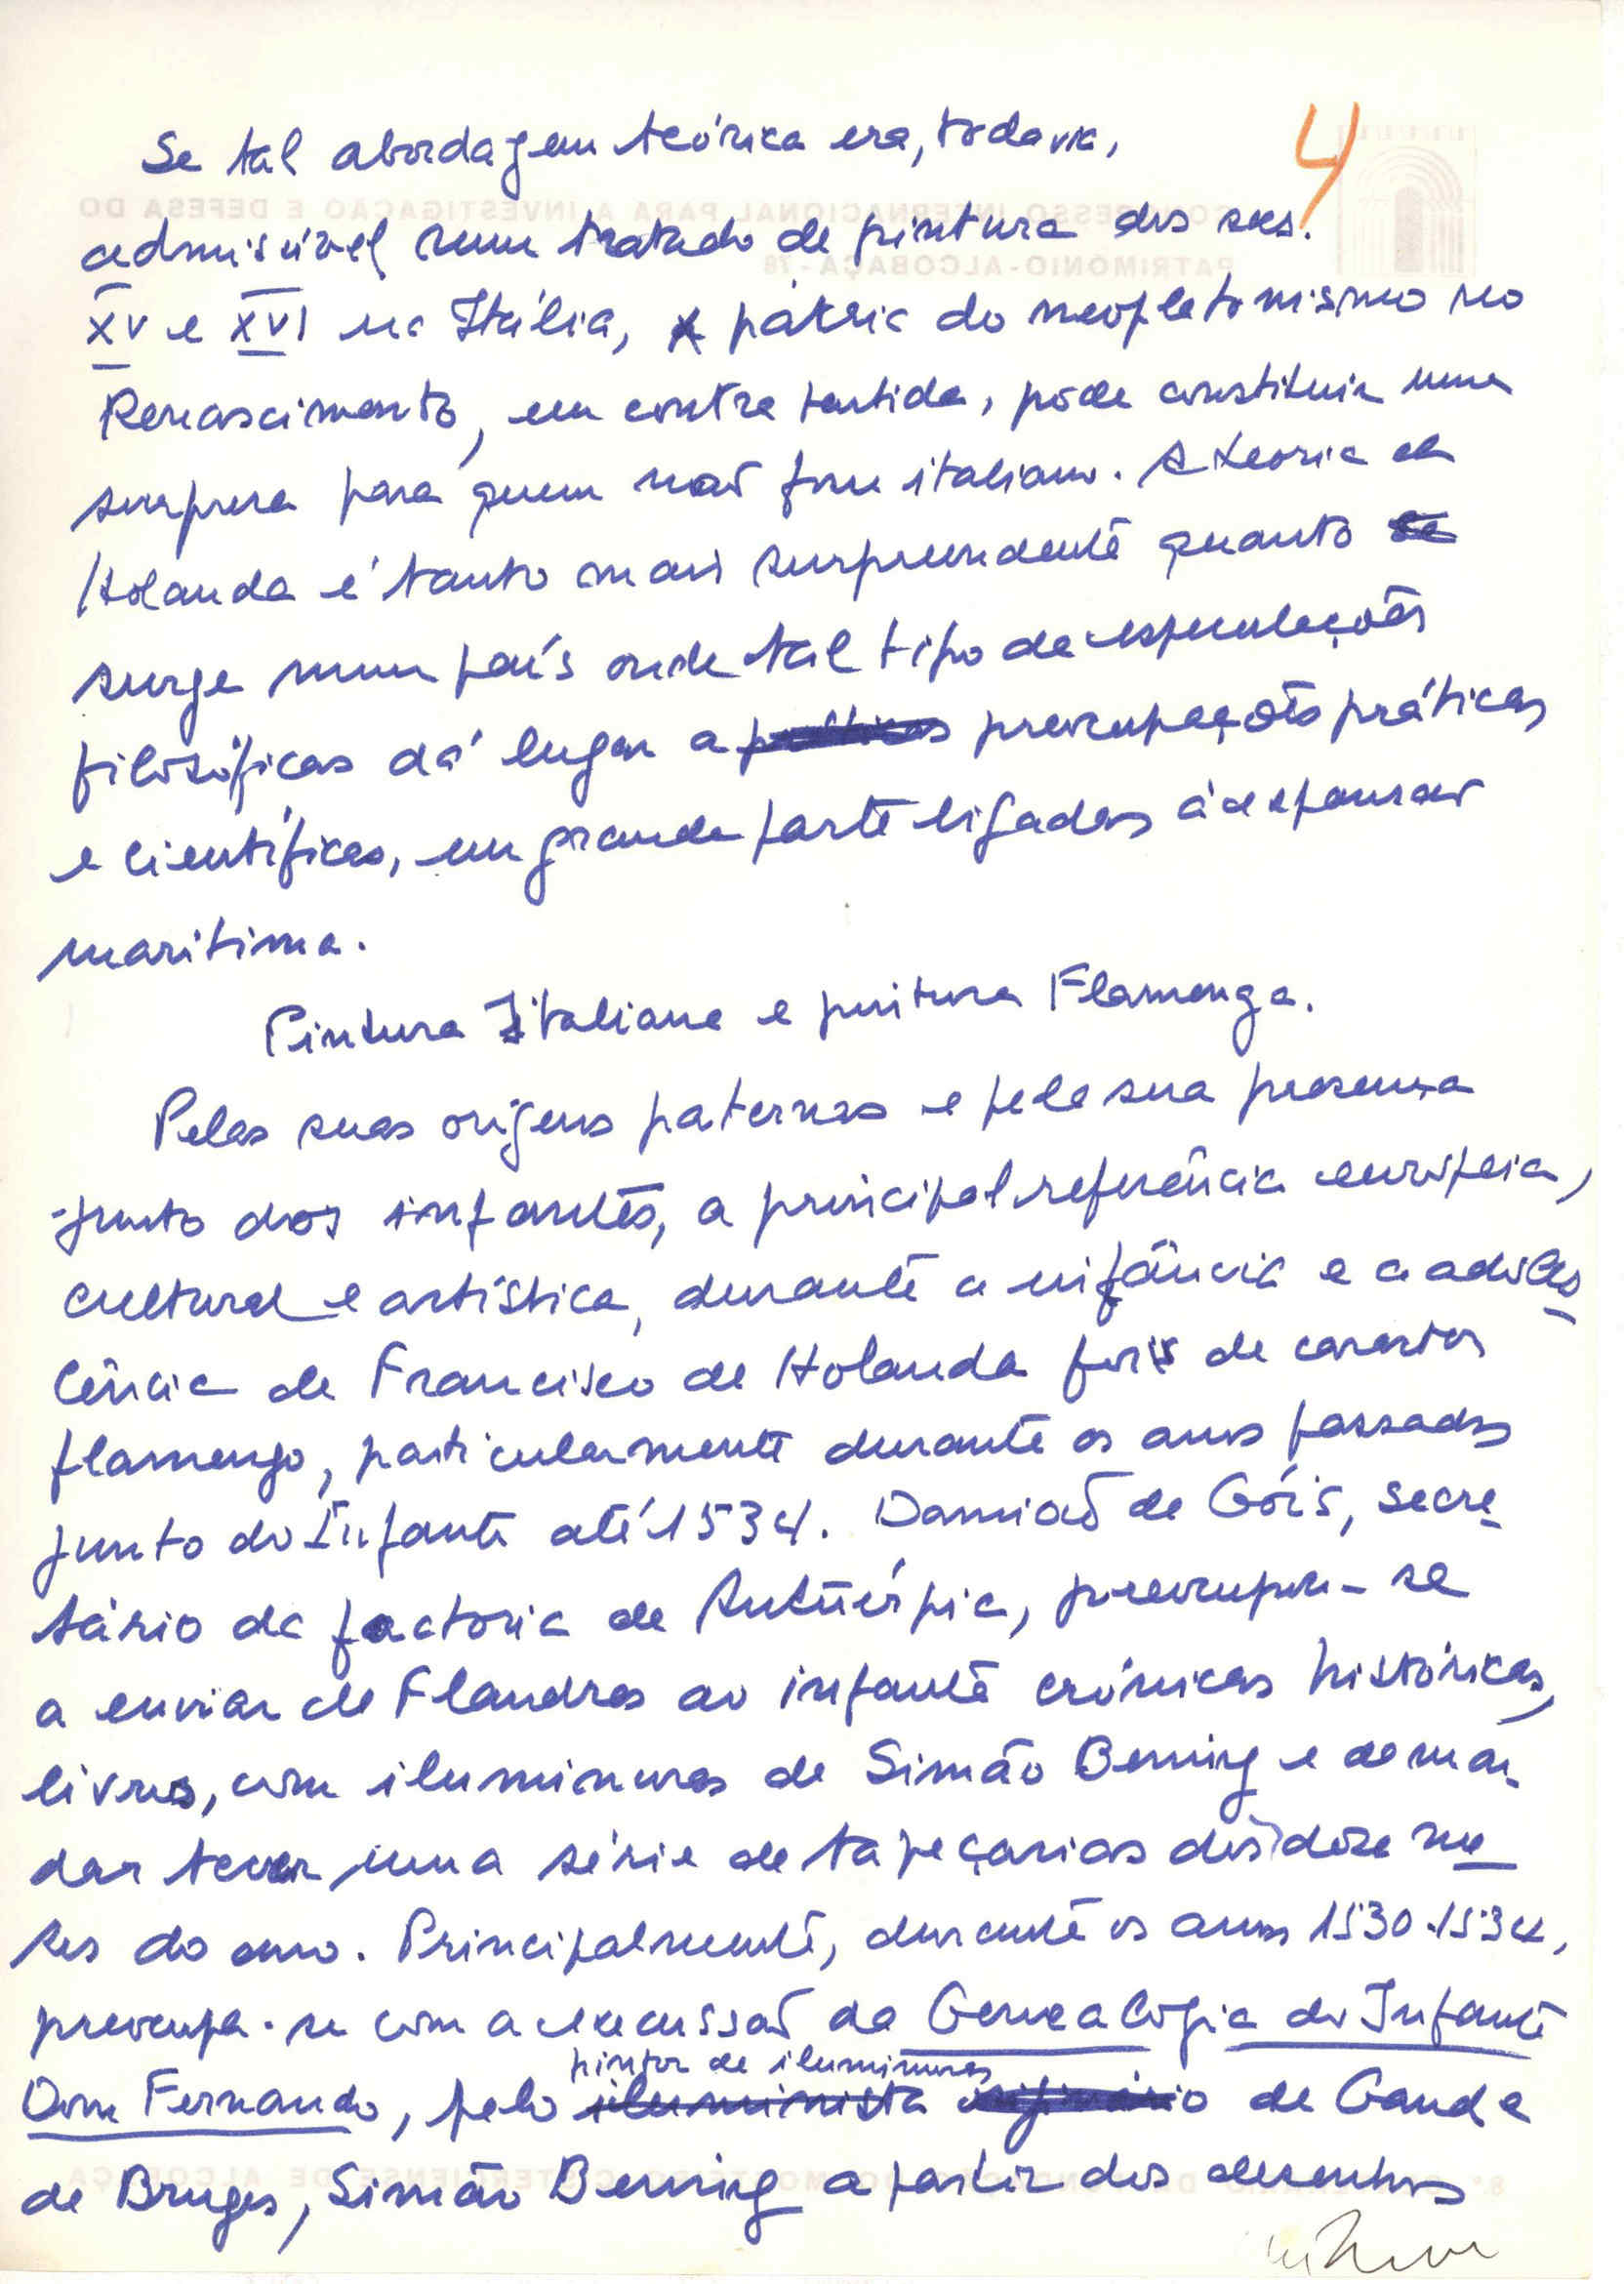 4
Se tal abordagem teórica era, todavia,
admissível num tratado de pintura dos secs.
XV e XVI na Itália, pátria do neoplatonismo no
Renascimento, em contra partida, pode constituir uma
surpresa para quem não for italiano. A teoria de
Holanda é tanto mais surpreendente quanto se
surge num país onde tal tipo de especulações
filosóficas dá lugar a preocupações práticas
e científicas, em grande parte ligadas à expansão
marítima.
Pintura Italiana e pintura Flamenga.
Pelas suas origens paternas e pela sua presença
junto dos infantes, a principal referência europeia,
cultural e artística, durante a infância e a adoles
cência de Francisco de Holanda foi de caracter
flamengo, particularmente durante os anos passados
junto do Infante até 1534. Damião de Góis, secre
tário da factoria de Antuérpia, preocupou-se
a enviar de Flandres ao infante crónicas históricas,
livros, com iluminuras de Simão Bening e de man
dar tecer uma série de tapeçarias dos doze me
ses do ano. Principalmente, durante os anos 1530-1534,
preocupa-se com a execussão da Genealogia do Infante
pintor de iluminuras
Dom Fernando, pelo iluministta de Gand e
de Bruges, Simão Bening a partir dos desenhos
CONGRESSO INTERNACIONAL PARA A INVESTIGAÇÃO E DEFESA DO
PATRIMÓNIO-ALCOBAÇA-78